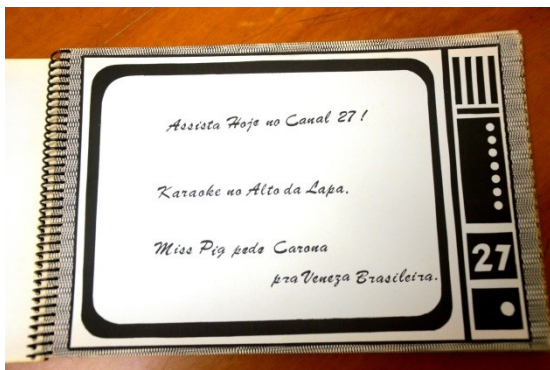 Assista Hoje no Canal 27!
Karaoke no Alto da Lapa.
Miss Pig pede Carona
pra Veneza Brasileira.
27